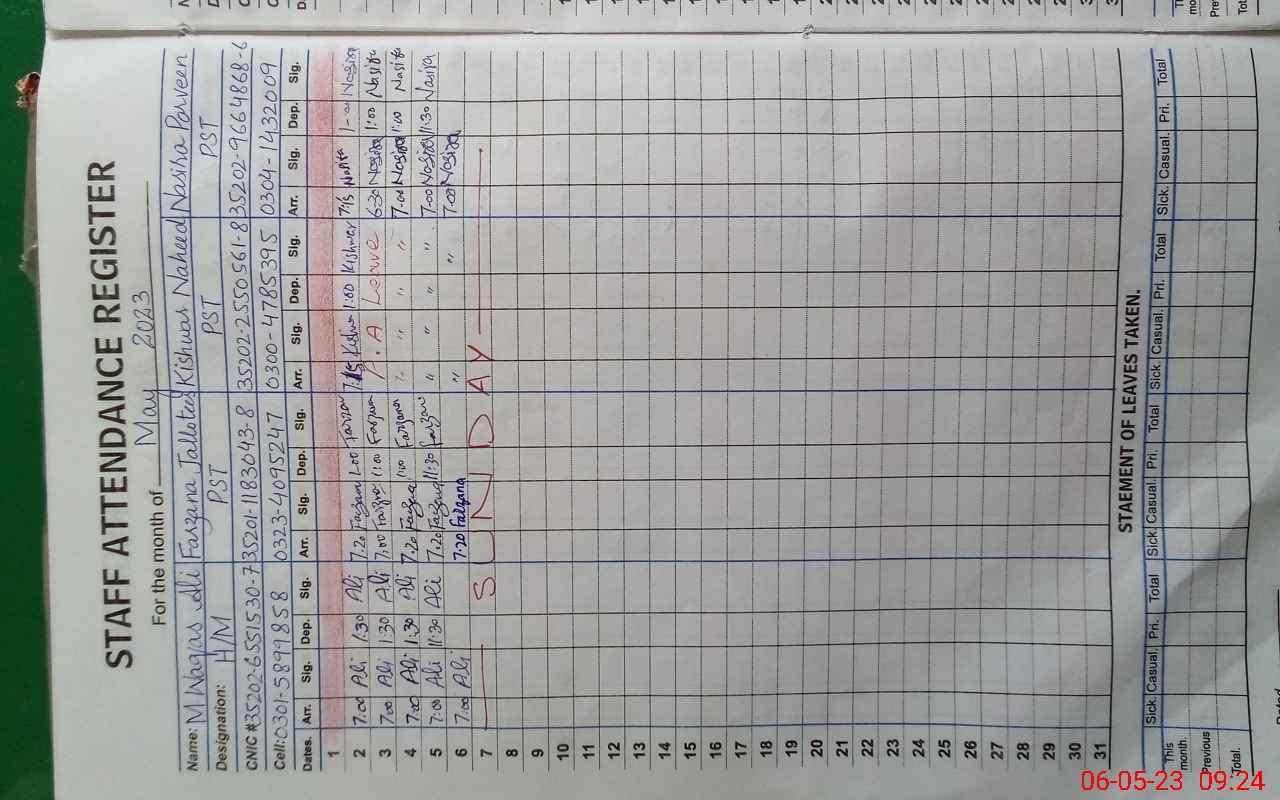 STAFF ATTENDANCE REGISTER
For the month of May 2023
Name: M Waqas Ali Farzana Kishwar Naheed Nasira Parveen
Designation: H/M PST PST PST
CNIC # 35202-6551530-7 35201-1183043-8 35202-2550561-8 35202-9664868-6
Cell: 0301-58991858 0323-4095247 0300-4785395 0304-1432009
Dates. Arr. Sig. Dep. Sig. Arr. Sig. Dep. Sig. Arr. Sig. Dep. Sig. Arr. Sig. Dep. Sig.
1
2 7:00 Ali 1:30 Ali 7.20 Farzana 1:00 Farzana Kishwar 1:00 Kishwar 7:15 Nasira 1-00 Nasira
3 7:00 Ali 1:30 Ali 7:00 Farzana 1:00 Farzana P.A Leave 6:30 Nasira 1:00 Nasira
4 7:00 Ali 1:30 Ali 7.20 Farzana 1:00 Farzana " " " " 7.00 Nasira 1:00 Nasira
5 7:00 Ali 11:30 Ali 7:20 Farzana 11:30 Farzana " " " " 7.00 Nasira 11:30 Nasira
6 7:00 Ali 7:20 Farzana " " 7:00 Nasira
7 SUNDAY
8
9
10
11
12
13
14
15
16
17
18
19
20
21
22
23
24
25
26
27
28
29
30
31
STAEMENT OF LEAVES TAKEN.
Sick. Casual. Pri. Total Sick. Casual. Pri. Total Sick. Casual. Pri. Total Sick. Casual. Pri. Total
This month.
Previous
Total.
06-05-23 09:24